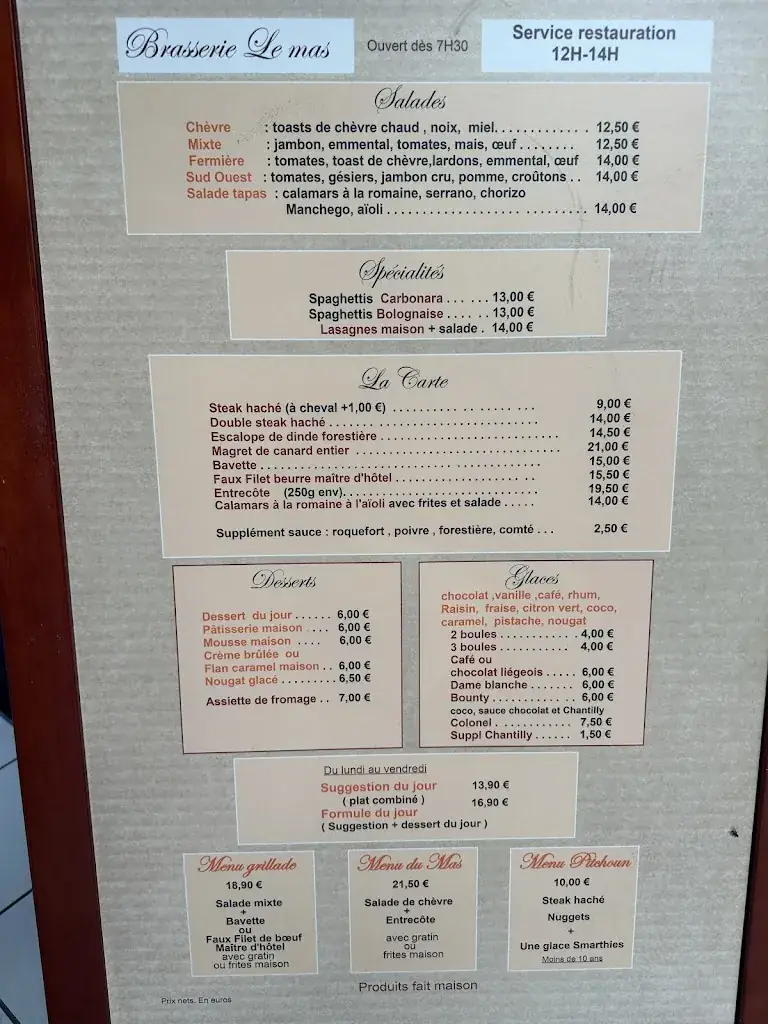 Brasserie Le mas
Ouvert dès 7H30
Service restauration
12H-14H
Salades
Chèvre : toasts de chèvre chaud , noix, miel. . . . . . . . . . . . . 12,50 €
Mixte : jambon, emmental, tomates, mais, œuf . . . . . . . . 12,50 €
Fermière : tomates, toast de chèvre,lardons, emmental, œuf 14,00 €
Sud Ouest : tomates, gésiers, jambon cru, pomme, croûtons . . 14,00 €
Salade tapas : calamars à la romaine, serrano, chorizo
Manchego, aïoli . . . . . . . . . . . . . . . . . . . . . . . . . . . . . 14,00 €
Spécialités
Spaghettis Carbonara . . . . . . 13,00 €
Spaghettis Bolognaise . . . . . . 13,00 €
Lasagnes maison + salade . 14,00 €
La Carte
Steak haché (à cheval +1,00 €) . . . . . . . . . . . . . . . . . . . . 9,00 €
Double steak haché . . . . . . . . . . . . . . . . . . . . . . . . . . . . . . 14,00 €
Escalope de dinde forestière . . . . . . . . . . . . . . . . . . . . . . . . . . 14,50 €
Magret de canard entier . . . . . . . . . . . . . . . . . . . . . . . . . . . . . 21,00 €
Bavette . . . . . . . . . . . . . . . . . . . . . . . . . . . . . . . . . . . . . . . . 15,00 €
Faux Filet beurre maître d'hôtel . . . . . . . . . . . . . . . . . . . . 15,50 €
Entrecôte (250g env). . . . . . . . . . . . . . . . . . . . . . . . . . . . 19,50 €
Calamars à la romaine à l'aïoli avec frites et salade . . . . . 14,00 €
Supplément sauce : roquefort , poivre , forestière, comté . . . 2,50 €
Desserts
Dessert du jour . . . . . . 6,00 €
Pâtisserie maison . . . . 6,00 €
Mousse maison . . . . 6,00 €
Crème brûlée ou
Flan caramel maison . . 6,00 €
Nougat glacé . . . . . . . . . 6,50 €
Assiette de fromage . . 7,00 €
Glaces
chocolat ,vanille ,café, rhum,
Raisin, fraise, citron vert, coco,
caramel, pistache, nougat
2 boules . . . . . . . . . . . . 4,00 €
3 boules . . . . . . . . . . . 4,00 €
Café ou
chocolat liégeois . . . . . 6,00 €
Dame blanche . . . . . . . 6,00 €
Bounty . . . . . . . . . . . . . 6,00 €
coco, sauce chocolat et Chantilly
Colonel . . . . . . . . . . . . 7,50 €
Suppl Chantilly . . . . . . 1,50 €
Du lundi au vendredi
Suggestion du jour 13,90 €
( plat combiné )
16,90 €
Formule du jour
( Suggestion + dessert du jour )
Menu grillade
18,90 €
Salade mixte
+
Bavette
ou
Faux Filet de bœuf
Maître d'hôtel
avec gratin
ou frites maison
Menu du Mas
21,50 €
Salade de chèvre
+
Entrecôte
avec gratin
ou
frites maison
Menu Pitchoun
10,00 €
Steak haché
Nuggets
+
Une glace Smarthies
Moins de 10 ans
Produits fait maison
Prix nets. En euros